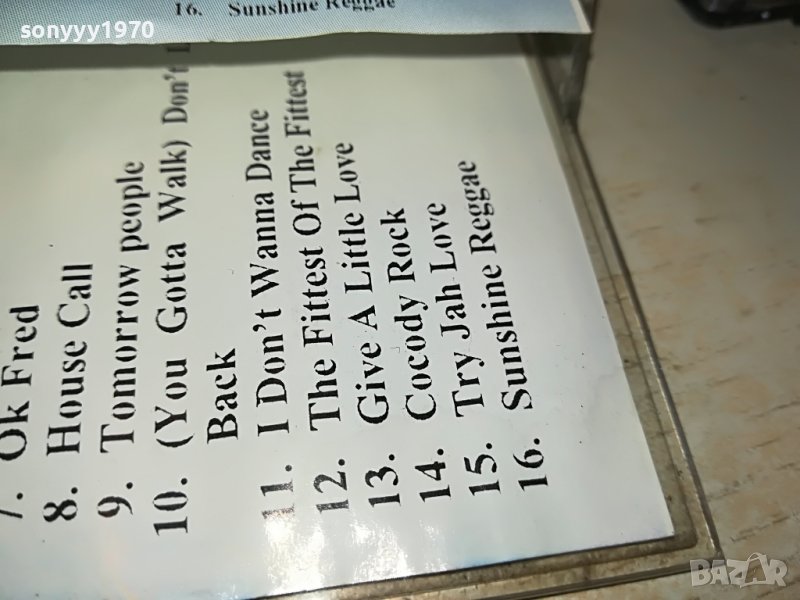 sonyyy1970
16. Sunshine Reggae
7. Ok Fred
8. House Call
9. Tomorrow people
10. (You Gotta Walk) Don't
Back
11. I Don't Wanna Dance
12. The Fittest Of The Fittest
13. Give A Little Love
14. Cocody Rock
15. Try Jah Love
16. Sunshine Reggae
BAZAR